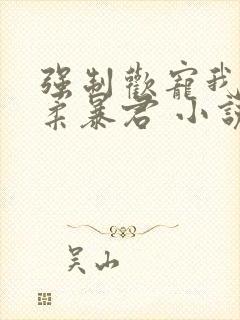 强制歡寵我
柔暴君 小說
吴山